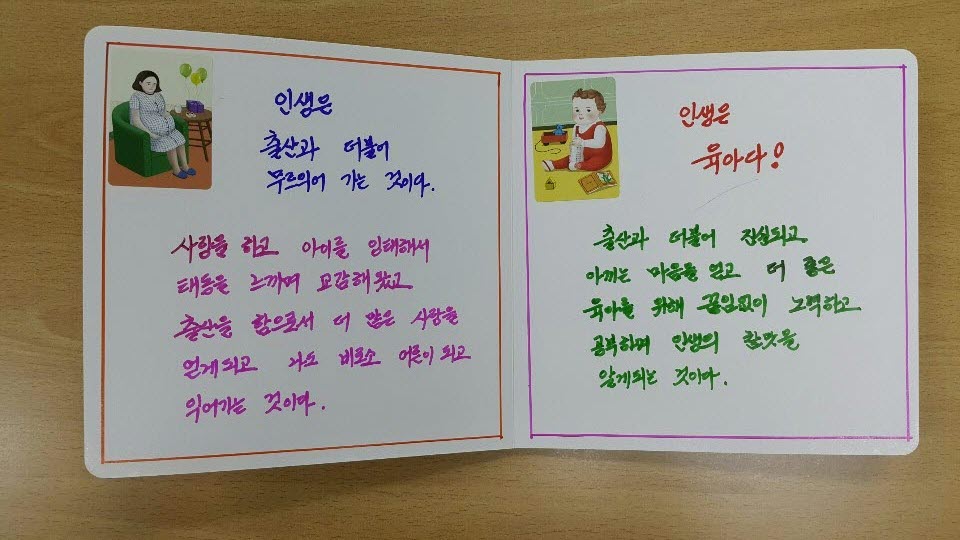 인생은
출산과 더불어
무르익어 가는 것이다.
사랑을 하고 아이를 임태해서
태동을 느끼며 교감해 왔고
출산을 함으로서 더 많은 사랑을
얻게되고 나도 비로소 어른이 되고
익어가는 것이다.
인생은
육아다!
출산과 더불어 진실되고
아끼는 마음을 얻고 더 좋은
육아를 위해 끊임없이 노력하고
공부하며 인생의 참맛을
알게되는 것이다.